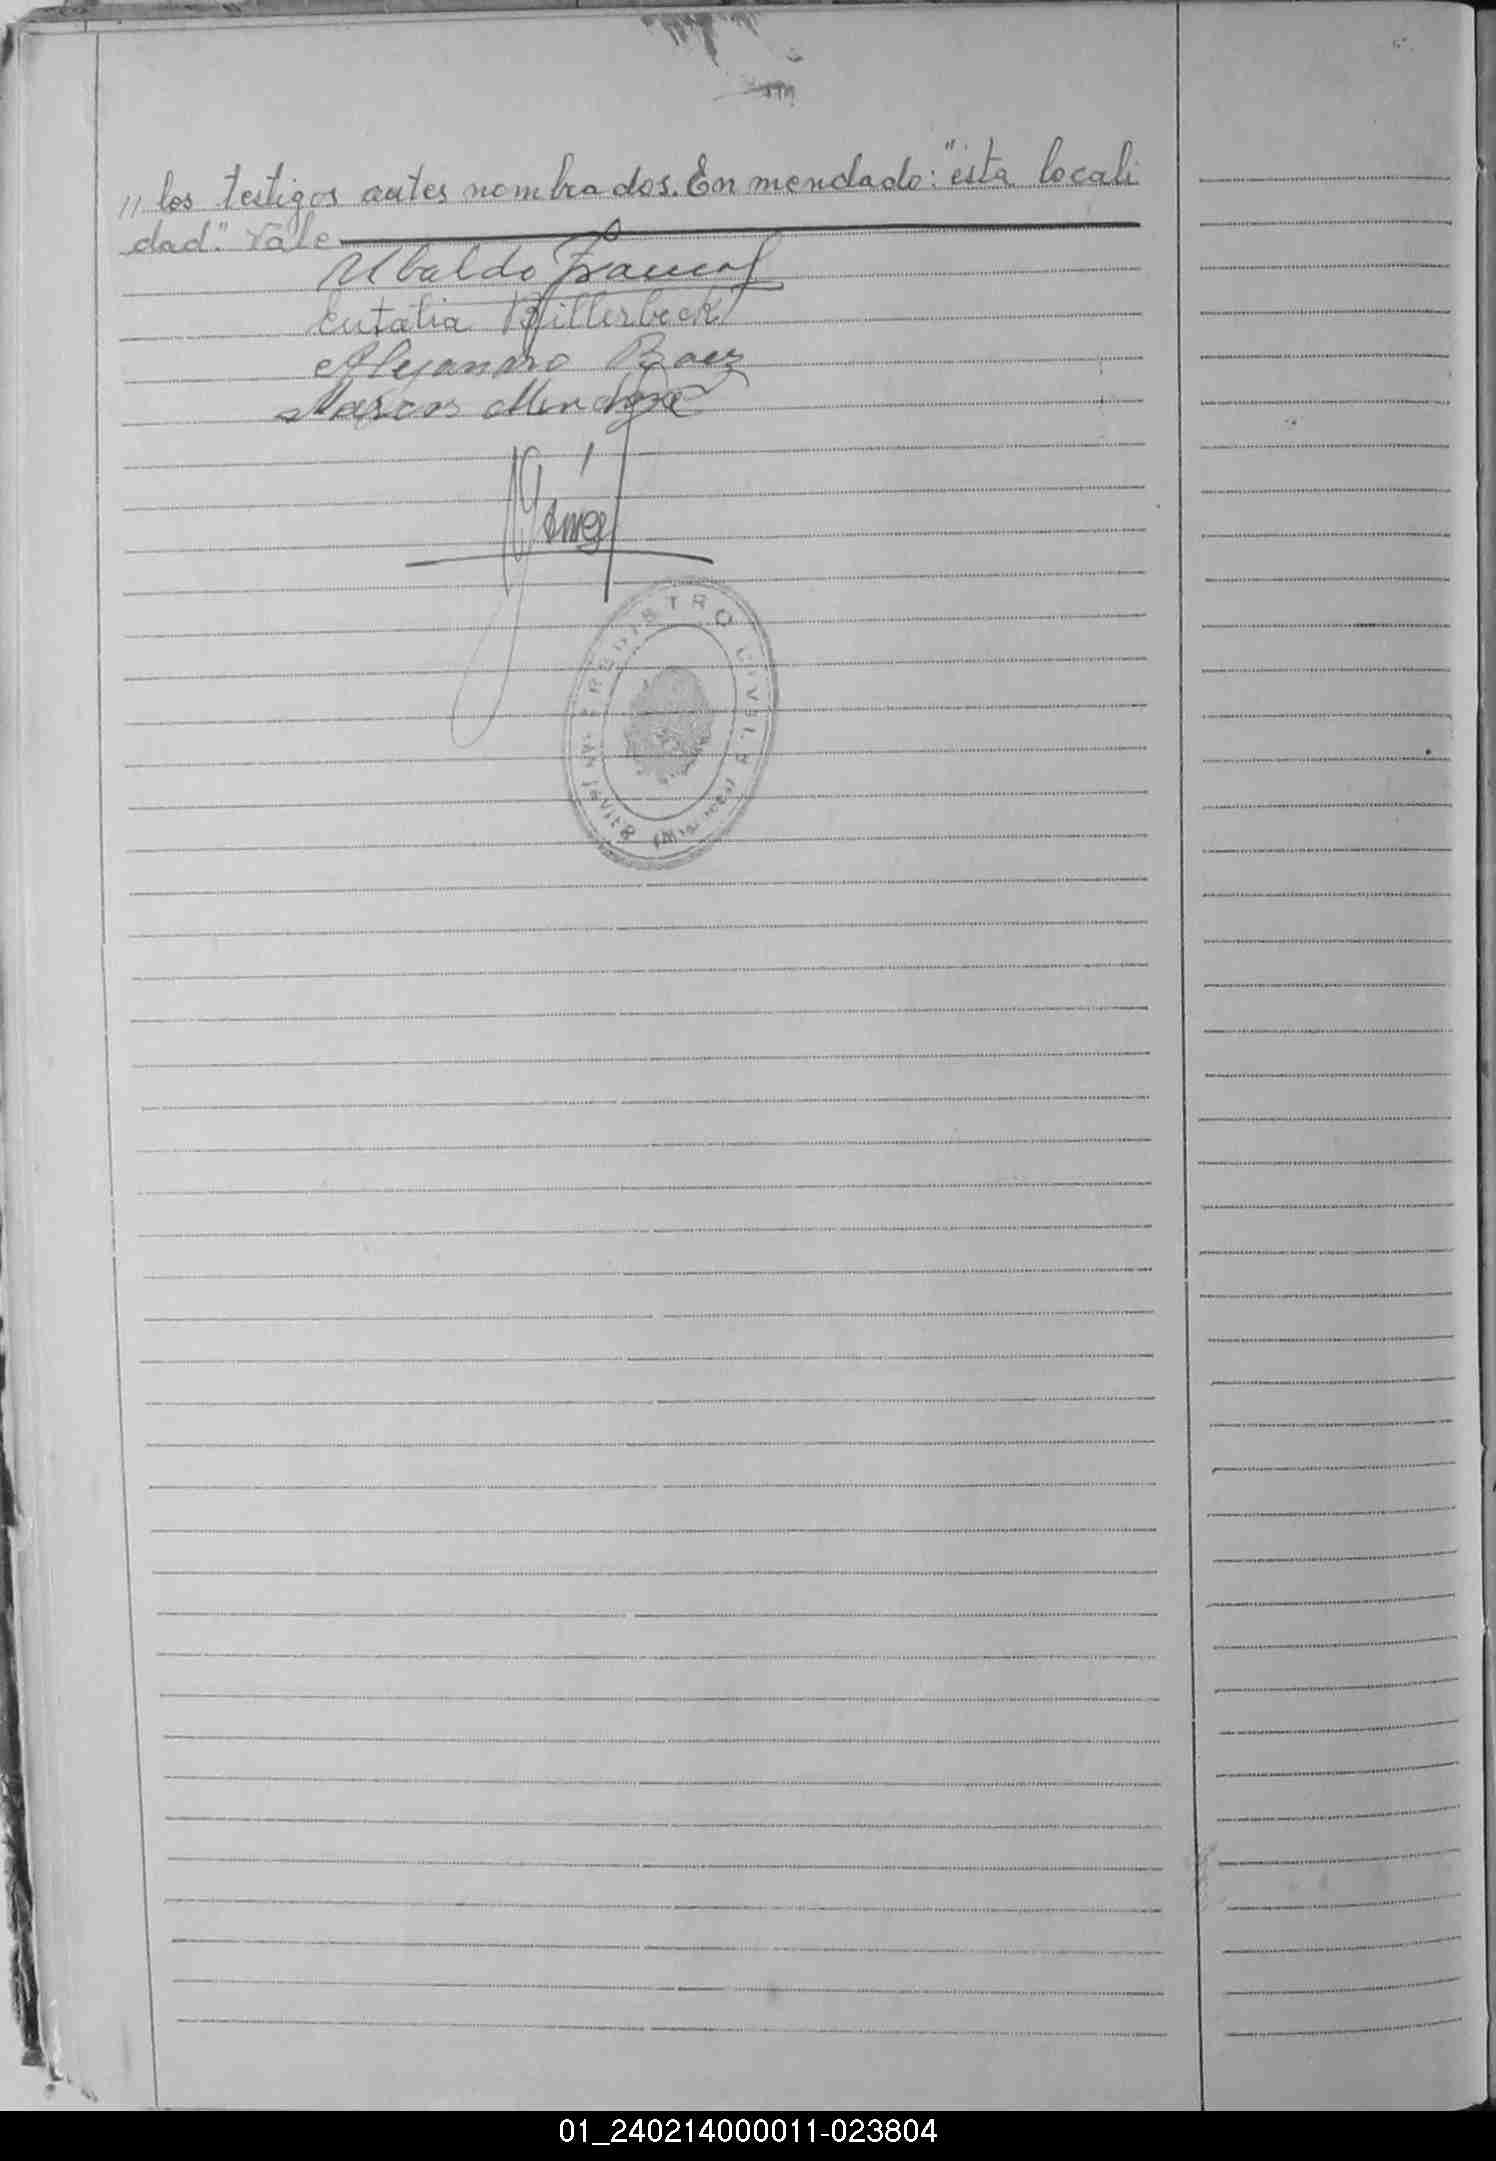 // los testigos antes nombrados. Enmendado: "esta locali
dad". Vale
Ubaldo Franco
Eutalia Billerbeck
Alejandro Baez
Marcos Mendoza
REGISTRO CIVIL
01_240214000011-023804